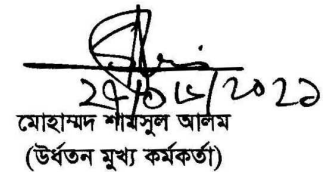 ২৭/০৮/২০২১
মোহাম্মদ শামসুল আলম
(উর্ধতন মুখ্য কর্মকর্তা)